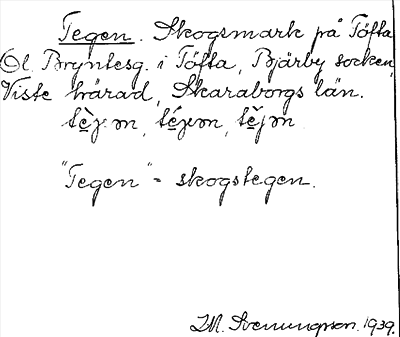 Tegen. Skogsmark på Töfta
Ol. Bryntesg. i Töfta, Bjärby socken,
Viste härad, Skaraborgs län.

"Tegen" = skogstegen.
I.M. Svenungson. 1939.